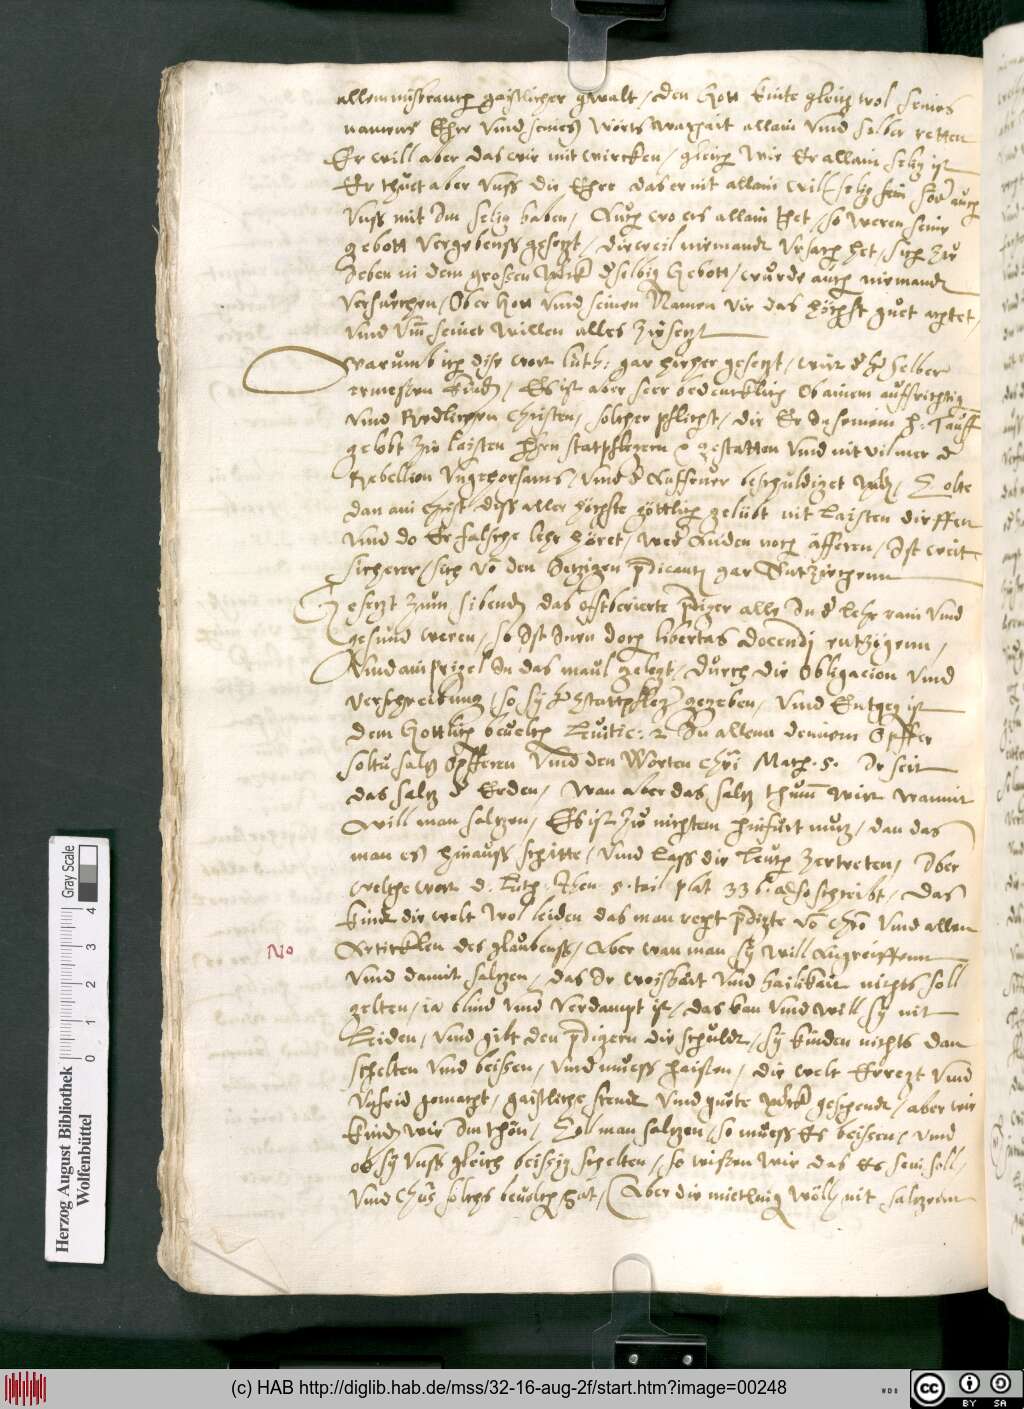 allem mißbrauch gaistlicher gwalt / den Gott künte gleich wol seines
namens Ehre vnnd seines worts warhait allain vnnd selber retten
Er will aber das wir mit wircken / gleich wie Er allain selig ist
Er thuet aber vnnß die Ehre das er nit allain will selig sein soder auch
vnnß mit Im selig haben / Auch wo ers allain thet / so weren seine
gebott vergebenß gesetzt / dieweil niemandt vrsach het / sich zu
yeben in dem grossen werk derselbig Gebott / wurde auch niemandt
versuechen / Ober Gott vnnd seinen Namen vir das höchst guet achtet,
vnnd vm seinet willen alles zusetzt
warumb ich dise wort Luth: gar hieher gesetzt / wirt selber
ermessen Es ist aber seer bedencklich Ob ainem auffrichtig
vnnd Redlichen Christen / solcher pflicht / die Er In seinem h: Tauff
gelobt zu laisten statpflegern zgestatten vnnd nit vilmer d
Rebellion vngehorsams / vnnd d Auffruer beschuldiget Solte
dan ain Christ diß aller höchste göttlich gelübt nit laisten dirffen
vnnd do Er falsche lehr höret / Ist weit
sicherer / sich vo den gar
Gesetzt zum sibenden das offtberierte prediger alle In d lehr rain vnd
gesund weren / so Ist Inen doch libertas docendi entzogenn,
vnnd ain In das maul gelegt / durch die Obligacion vnnd
verschreibung / so sy gegeben / vnnd Entgeg ist
dem Gottlich beuelch Leuitic: 2 In allem deinem Opffer
soltu saltz Opfferen vnnd den Worten Chri Math. 5. Ir seit
das saltz d Erden / wan aber das saltz thum wirt wamit
will man saltzen / Es ist zu nichtem hinfürt nutz / dan das
man es hinauß schitte / vnnd laß die leuth zertreten / Iber
welche wort D. Luth. Jhen. 5. tail plat 336. also schreibt / Das
kind die welt wol leiden das man recht predigte vo Chro vnnd allen
No Artickklen des glaubenß / Aber wan man sy will Angreiffenn
vnnd damit saltzen / das Ir weißhait vnnd hailikait nichts soll
gelten / ia blind vnd verdampt ist / das kan vnnd will sy nit
Leiden / vnnd gibt den predigern die schuldt / sy kinden nichts dan
schelten vnnd beissen / vnnd mueß haissen / die welt Erregt vnnd
vnfrid gemacht / gaistliche stendt vnnd guete werk geschendt / aber wie
kinden wir Im thon / Soll man saltzen / so mueß Es beissen / vnnd
ob sy vnnß gleich beissig schelten / so wissen wir das Es sein soll /
vnnd Chrs solchs beuolch hat / Aber die mietling wölln nit saltzenn
Herzog August Bibliothek
Wolfenbüttel
0 1 2 3 4
Gray Scale
(c) HAB http://diglib.hab.de/mss/32-16-aug-2f/start.htm?image=00248
WDB
cc BY SA